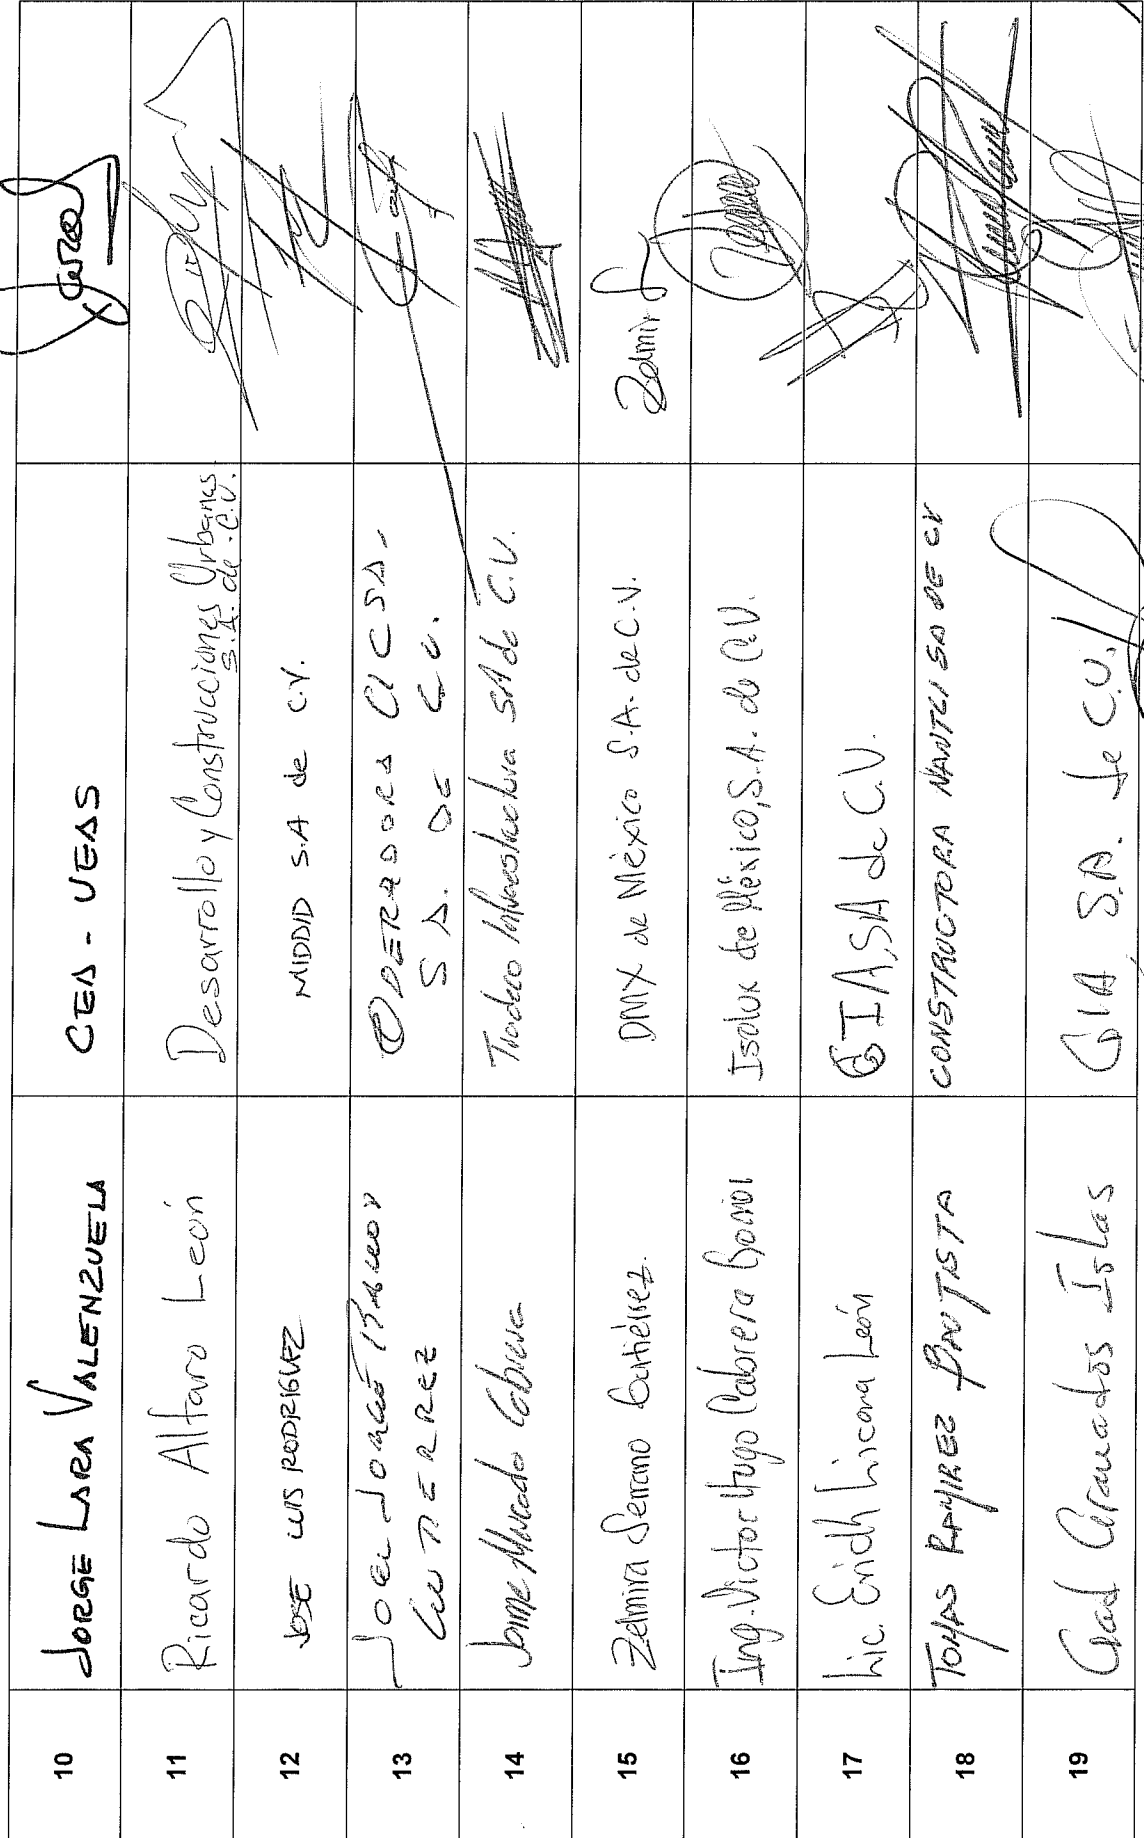 10 JORGE LARA VALENZUELA CEA - VEAS
11 Ricardo Alfaro León Desarrollo y Construcciones Urbanas
S.A. de C.V.
12 JOSE LUIS RODRIGUEZ MIDDID S.A de C.V.
13 JOEL JORGE OPERADORA CICSA,
GUTIERREZ S A. DE C.V.
14 Jaime Mercado Cabrera Tradeco Infraestructura SA de C.V.
15 Zelmira Serrano Gutiérrez. DMX de México S.A. de C.V. Zelmira S
16 Ing. Victor Hugo Cabrera Isolux de México, S.A. de C.V.
17 Lic. Eridh Licona León GIA, SA de C.V.
18 TOMAS RAMIREZ BAUTISTA CONSTRUCTORA NANTLI SA DE CV
19 Gad Granados Islas GIA, S.A. de C.V.